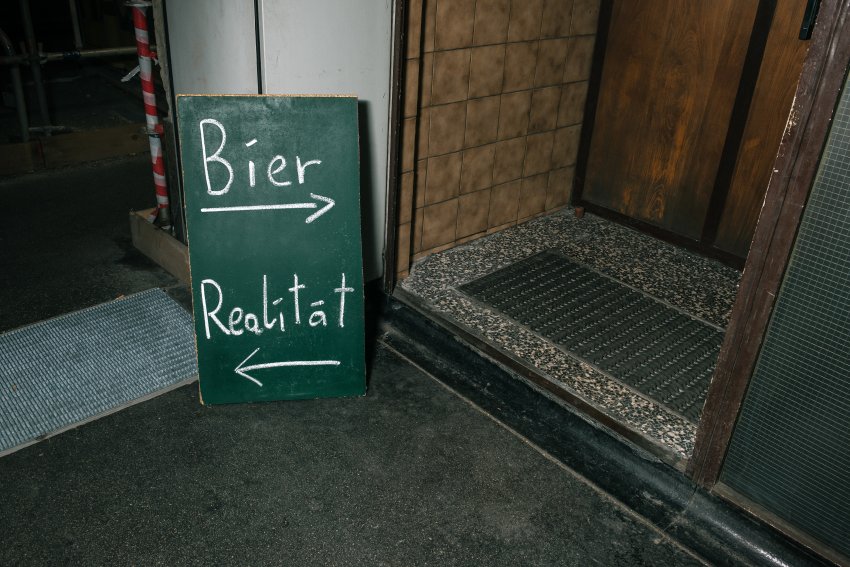 Bier
→
Realität
←